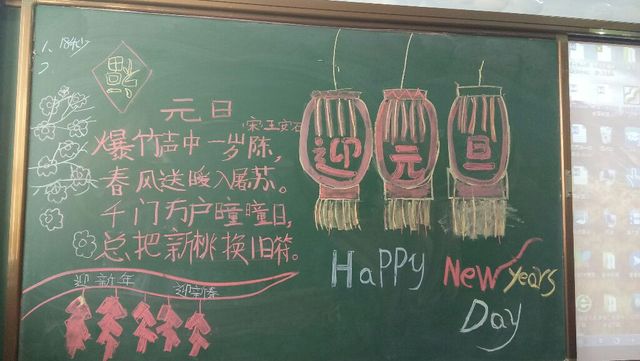 福
元日
宋:王安石
爆竹声中一岁陈，
春风送暖入屠苏。
千门万户曈曈日，
总把新桃换旧符。
迎新年
迎新春
迎元旦
HaPPy New years
Day